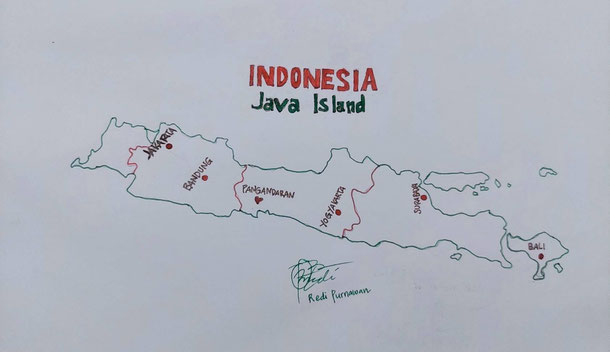 INDONESIA
Java Island
JAKARTA
BANDUNG
PANGANDARAN
YOGYAKARTA
SURABAYA
BALI
Redi
Redi Purnawan